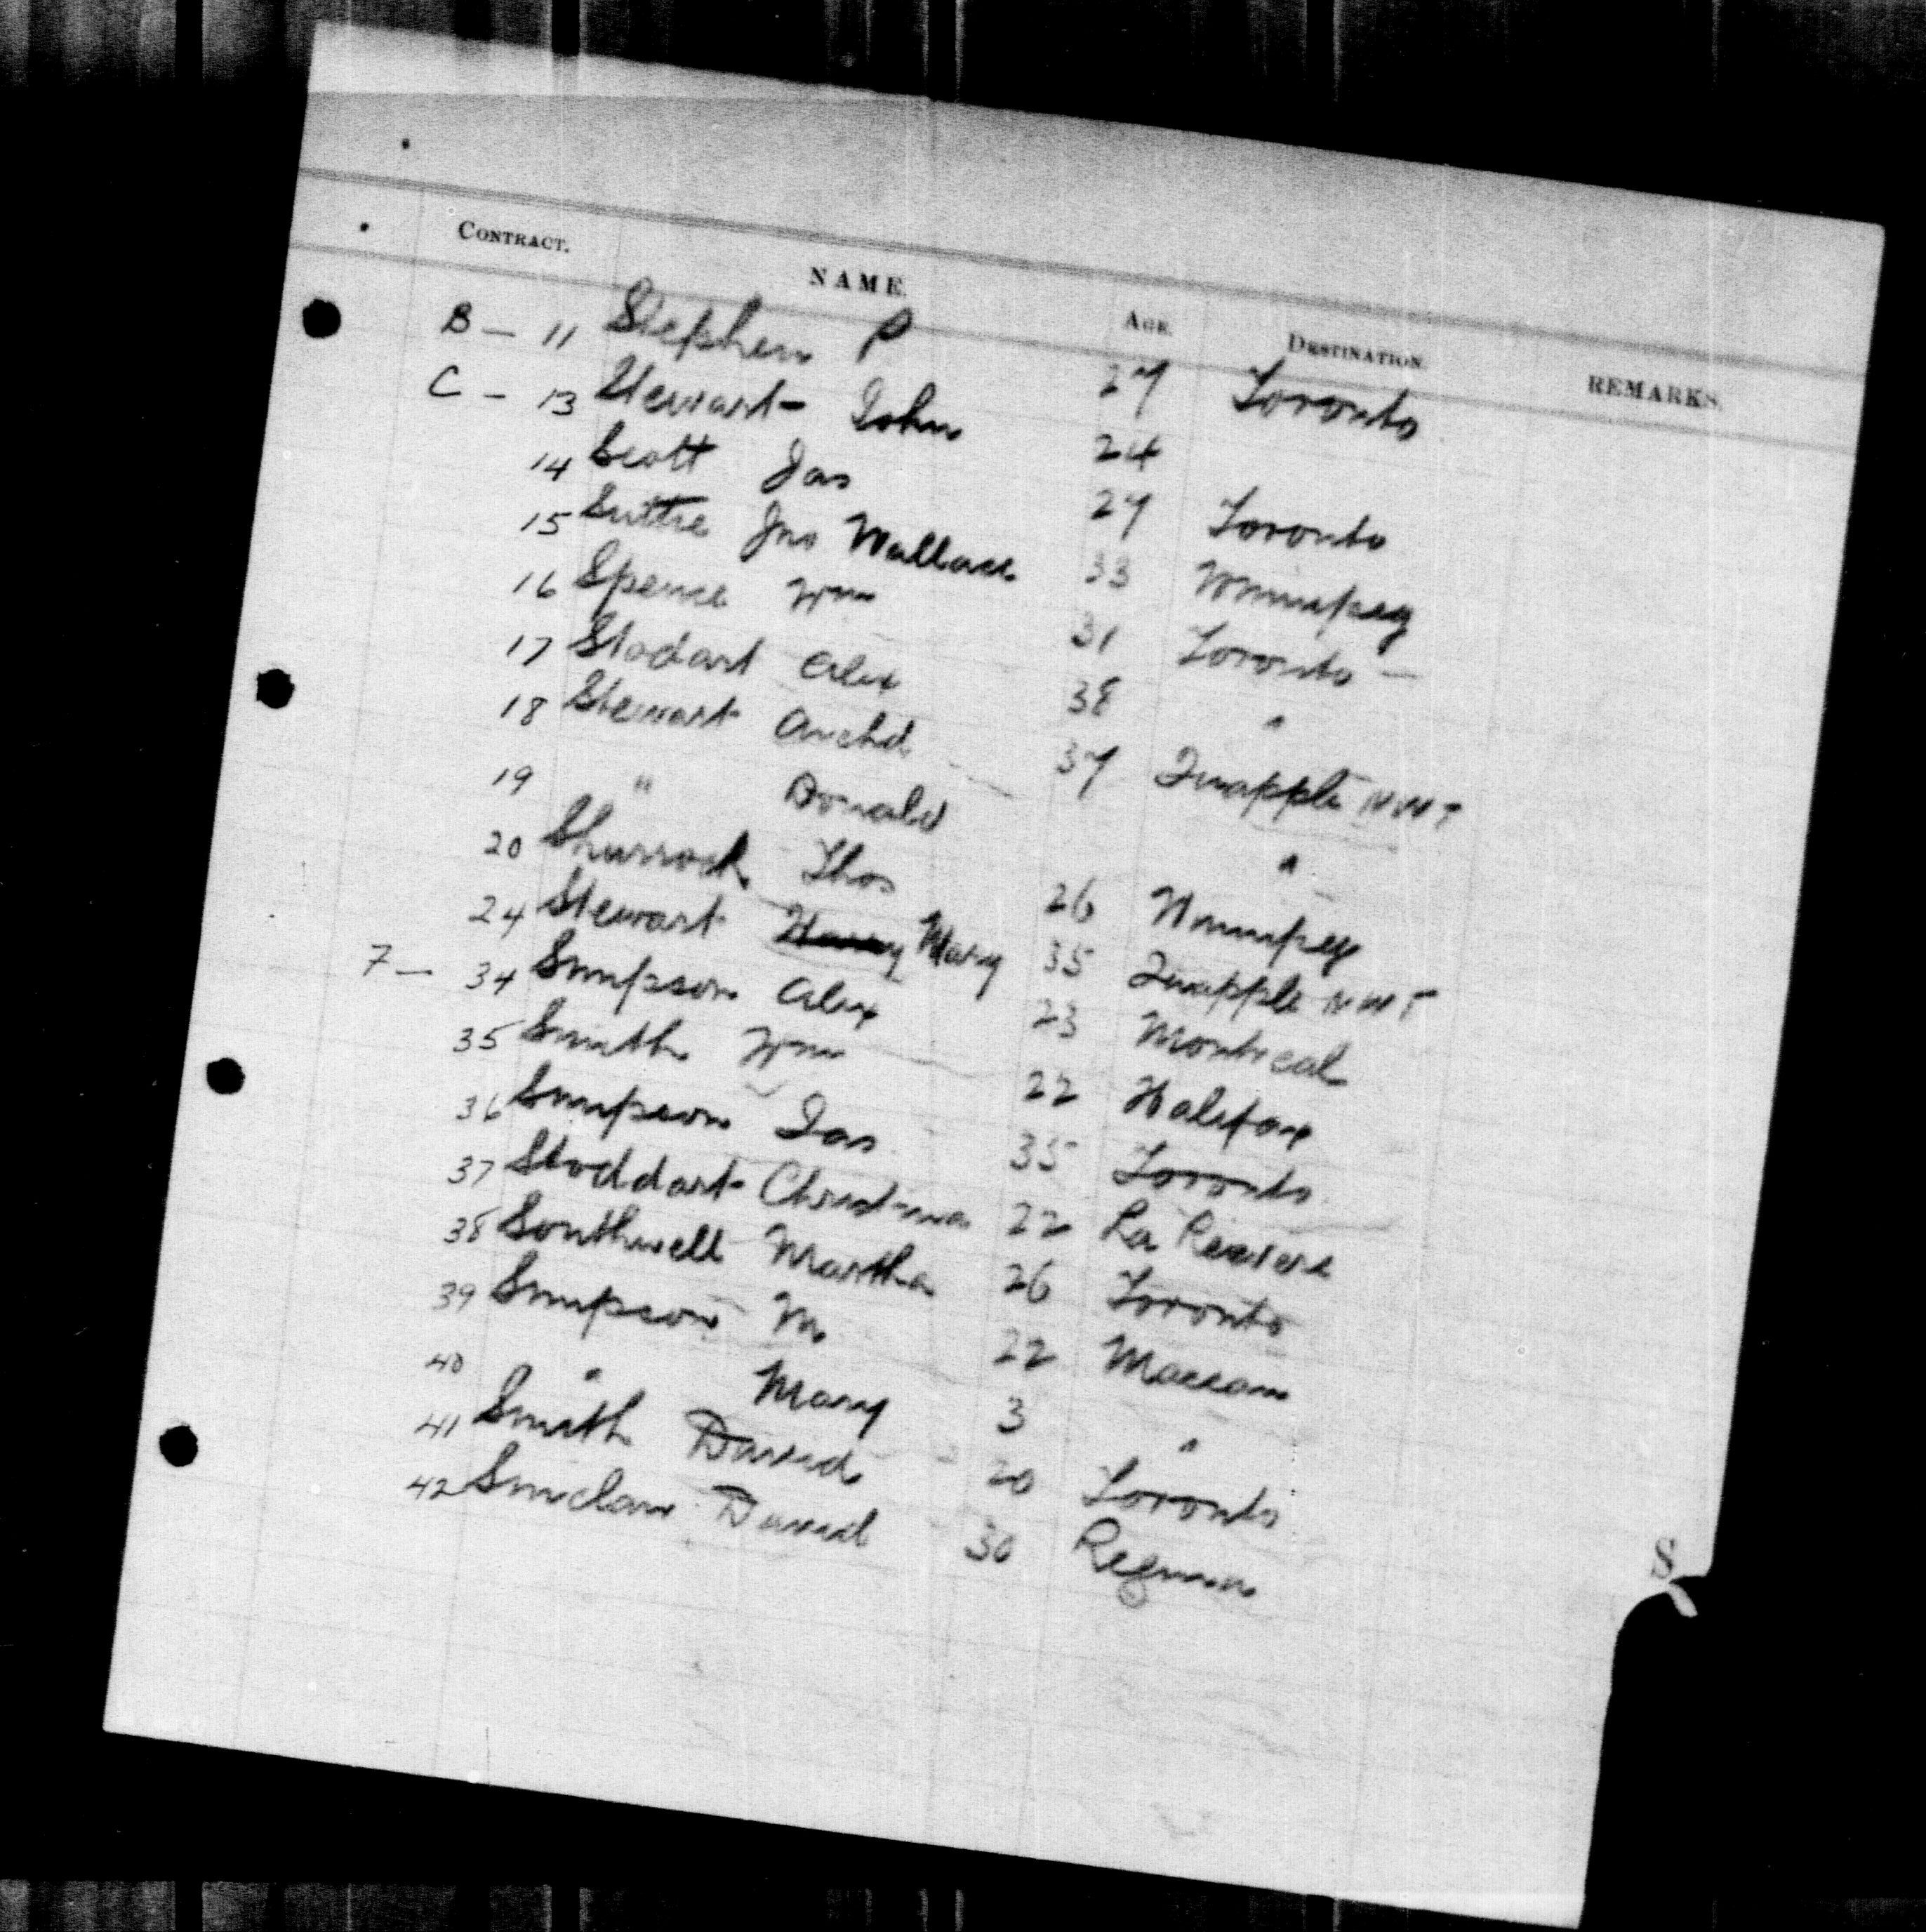 CONTRACT. NAME. AGE. DESTINATION. REMARKS.
B - 11 Stephen P 27 Toronto
C - 13 Stewart John 24
14 Scott Jas 27 Toronto
15 Suttie Jas Wallace 33 Winnipeg
16 Spence Wm 31 Toronto -
17 Stodart Alex 38 "
18 Stewart Archd 37 Quapple NWT
19 " Donald "
20 Shurrock Thos 26 Winnipeg
24 Stewart Harry Mary 35 Quapple NWT
7 - 34 Simpson Alex 23 Montreal
35 Smith Wm 22 Halifax
36 Simpson Jas 35 Toronto
37 Stoddart Christina 22 La Reviere
38 Southwell Martha 26 Toronto
39 Simpson M 22 Maccam
40 " Mary 3 "
41 Smith David 20 Toronto
42 Sinclair David 30 Regina
S